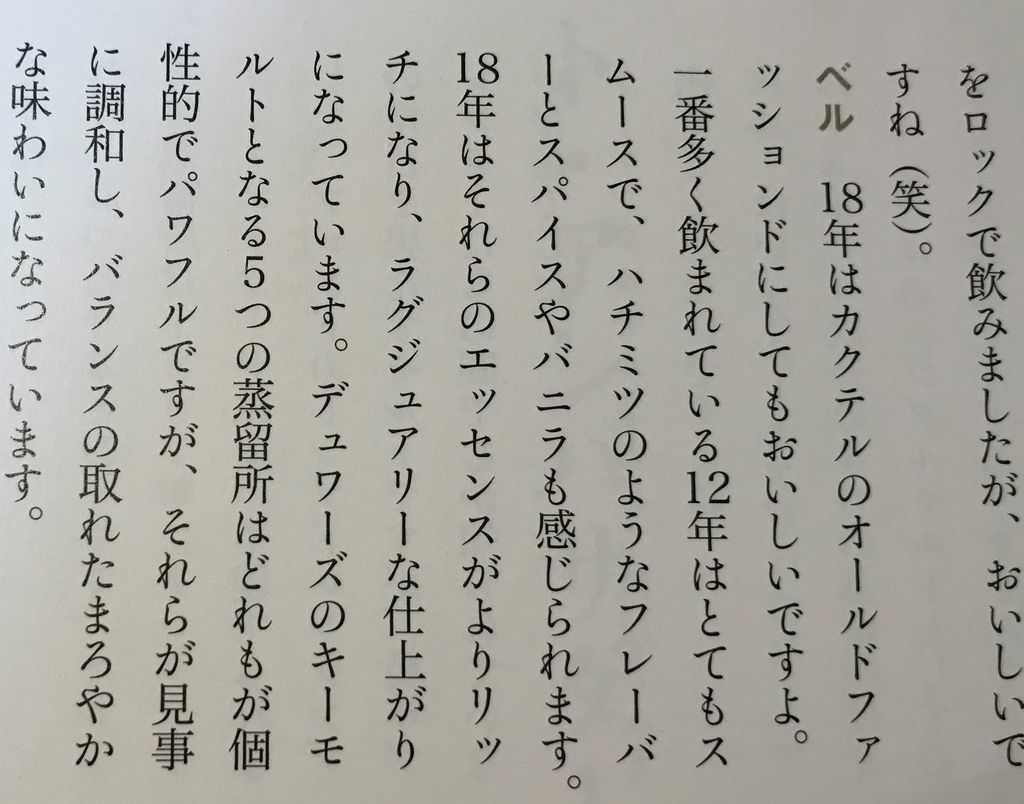 をロックで飲みましたが、おいしいで
すね（笑）。
ベル　18年はカクテルのオールドファ
ッションドにしてもおいしいですよ。
一番多く飲まれている12年はとてもス
ムースで、ハチミツのようなフレーバ
ーとスパイスやバニラも感じられます。
18年はそれらのエッセンスがよりリッ
チになり、ラグジュアリーな仕上がり
になっています。デュワーズのキーモ
ルトとなる5つの蒸留所はどれもが個
性的でパワフルですが、それらが見事
に調和し、バランスの取れたまろやか
な味わいになっています。